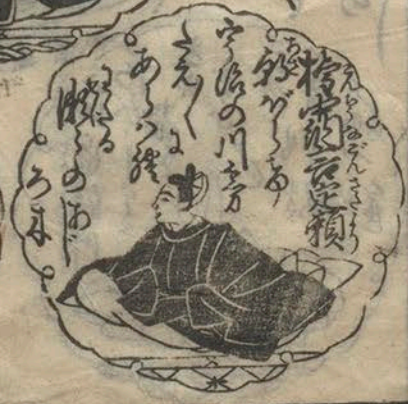 権中納言定頼
朝ぼらけ
宇治の川霧
たえ〲に
あらはれ
わたる
瀬〻のあじ
ろ木